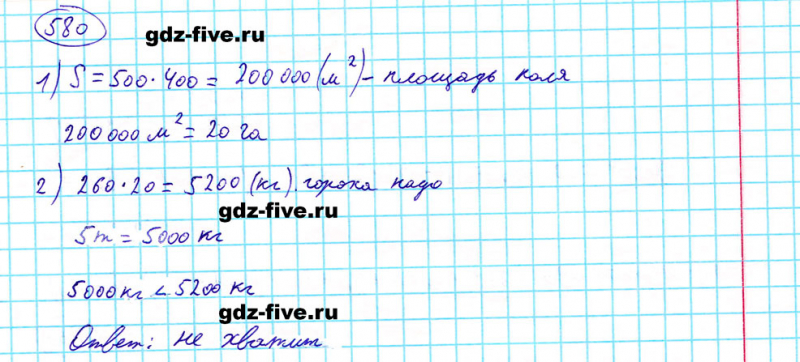 580
gdz-five.ru
1) S = 500 · 400 = 200 000 (м²) – площадь поля
200 000 м² = 20 га
2) 260 · 20 = 5200 (кг) гороха надо
gdz-five.ru
5т = 5000 кг
5000 кг < 5200 кг
gdz-five.ru
Ответ: не хватит